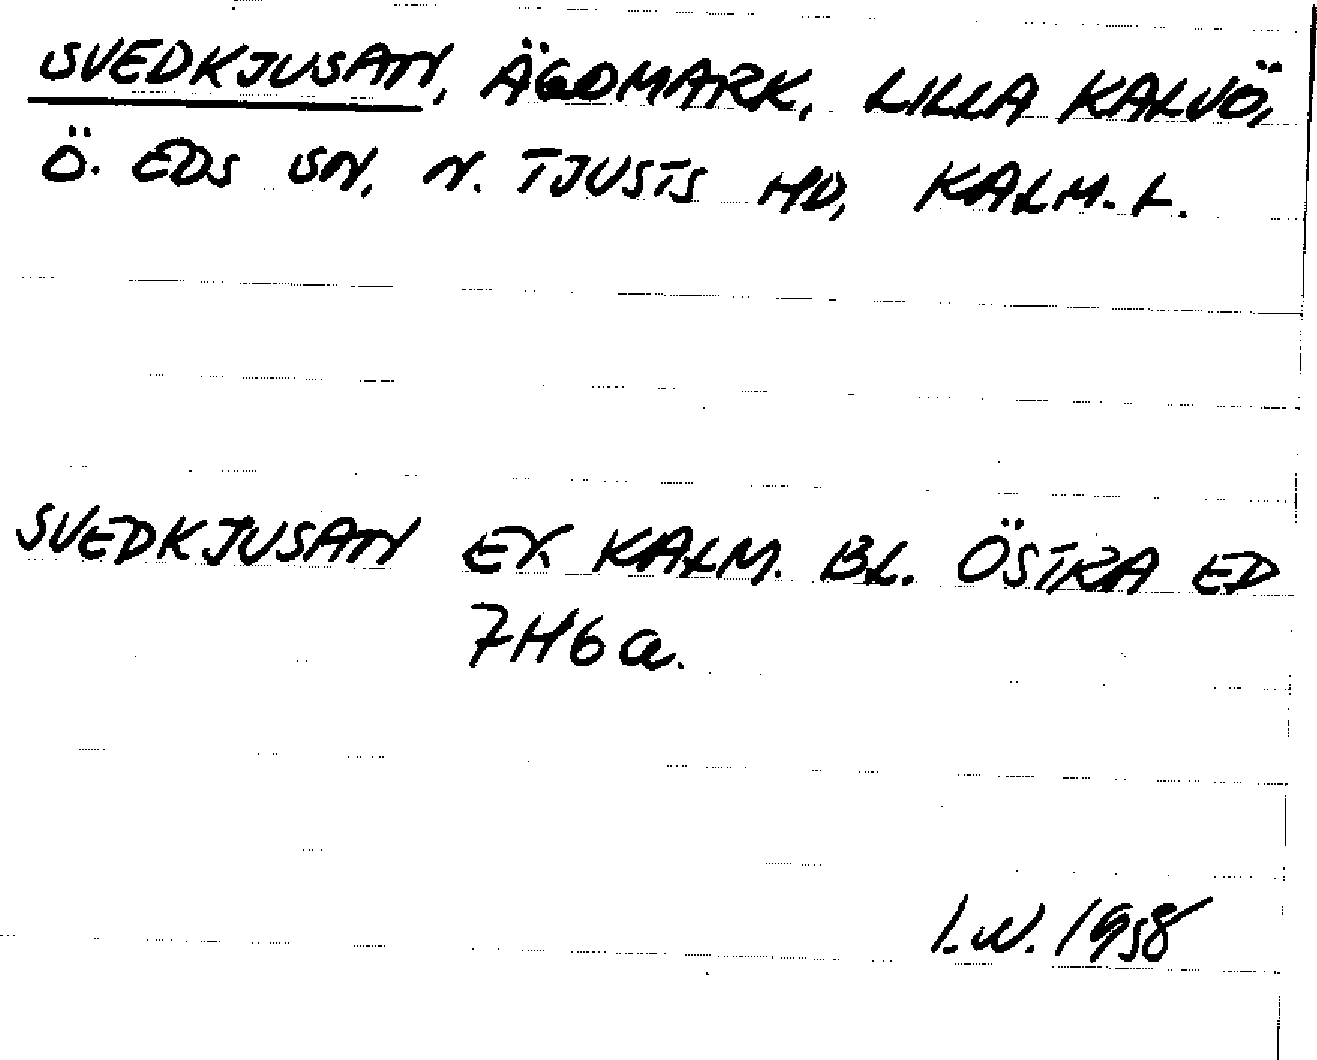 SVEDKJUSAN, ÄGOMARK, LILLA KALVÖ,
Ö. EDS SN, N. TJUSTS HD, KALM. L.
SVEDKJUSAN EK KALM. BL. ÖSTRA ED
7H6a.
I.W. 1958